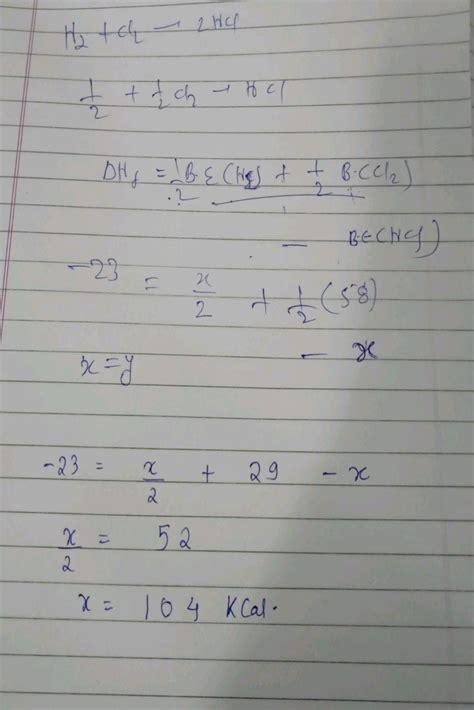 H₂ + Cl₂ → 2HCl
1/2 + 1/2 Cl₂ → HCl
ΔHf = 1/2 B.E(H₂) + 1/2 B.(Cl₂)
- B.E(HCl)
-23 = x/2 + 1/2 (58)
- x
x = y
-23 = x/2 + 29 - x
x/2 = 52
x = 104 KCal.